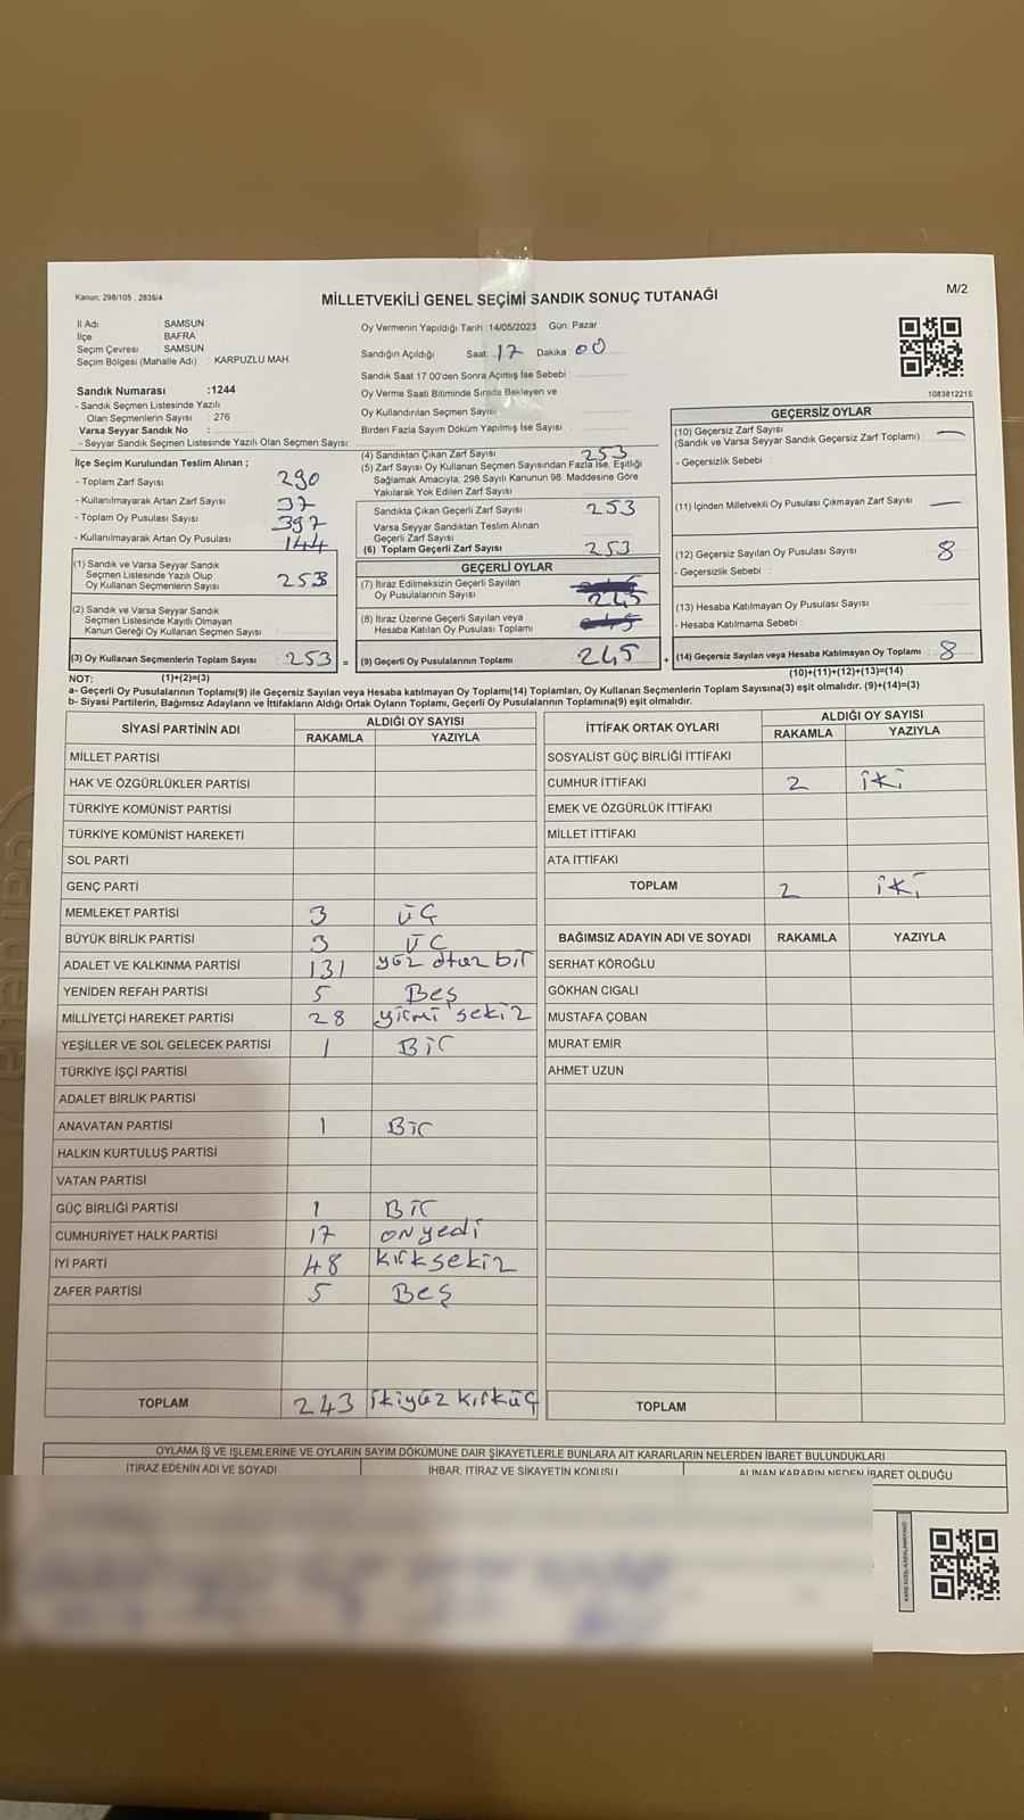 Kanun: 298/105 , 2839/4
MİLLETVEKİLİ GENEL SEÇİMİ SANDIK SONUÇ TUTANAĞI
M/2
İl Adı : SAMSUN
İlçe : BAFRA
Seçim Çevresi : SAMSUN
Seçim Bölgesi (Mahalle Adı) : KARPUZLU MAH.
Sandık Numarası :1244
- Sandık Seçmen Listesinde Yazılı
Olan Seçmenlerin Sayısı : 276
Varsa Seyyar Sandık No :
- Seyyar Sandık Seçmen Listesinde Yazılı Olan Seçmen Sayısı:
Oy Vermenin Yapıldığı Tarih :14/05/2023 Gün: Pazar
Sandığın Açıldığı Saat: 17 Dakika: 00
Sandık Saat 17.00'den Sonra Açımış İse Sebebi :
Oy Verme Saati Bitiminde Sırada Bekleyen ve
Oy Kullandırılan Seçmen Sayısı :
Birden Fazla Sayım Döküm Yapılmış İse Sayısı :
1083812215
İlçe Seçim Kurulundan Teslim Alınan ;
- Toplam Zarf Sayısı : 290
- Kullanılmayarak Artan Zarf Sayısı : 37
- Toplam Oy Pusulası Sayısı : 397
- Kullanılmayarak Artan Oy Pusulası : 144
(1) Sandık ve Varsa Seyyar Sandık
Seçmen Listesinde Yazılı Olup
Oy Kullanan Seçmenlerin Sayısı : 253
(2) Sandık ve Varsa Seyyar Sandık
Seçmen Listesinde Kayıtlı Olmayan
Kanun Gereği Oy Kullanan Seçmen Sayısı :
(3) Oy Kullanan Seçmenlerin Toplam Sayısı : 253 =
(1)+(2)=(3)
(4) Sandıktan Çıkan Zarf Sayısı : 253
(5) Zarf Sayısı Oy Kullanan Seçmen Sayısından Fazla İse, Eşitliği
Sağlamak Amacıyla, 298 Sayılı Kanunun 98. Maddesine Göre
Yakılarak Yok Edilen Zarf Sayısı :
Sandıkta Çıkan Geçerli Zarf Sayısı : 253
Varsa Seyyar Sandıktan Teslim Alınan
Geçerli Zarf Sayısı :
(6) Toplam Geçerli Zarf Sayısı : 253
GEÇERLİ OYLAR
(7) İtiraz Edilmeksizin Geçerli Sayılan
Oy Pusulalarının Sayısı : 245
(8) İtiraz Üzerine Geçerli Sayılan veya
Hesaba Katılan Oy Pusulası Toplamı :
(9) Geçerli Oy Pusulalarının Toplamı : 245 +
GEÇERSİZ OYLAR
(10) Geçersiz Zarf Sayısı : —
(Sandık ve Varsa Seyyar Sandık Geçersiz Zarf Toplamı)
- Geçersizlik Sebebi :
(11) İçinden Milletvekili Oy Pusulası Çıkmayan Zarf Sayısı : —
(12) Geçersiz Sayılan Oy Pusulası Sayısı : 8
- Geçersizlik Sebebi :
(13) Hesaba Katılmayan Oy Pusulası Sayısı :
- Hesaba Katılmama Sebebi :
(14) Geçersiz Sayılan veya Hesaba Katılmayan Oy Toplamı : 8
(10)+(11)+(12)+(13)=(14)
NOT:
a- Geçerli Oy Pusulalarının Toplamı(9) ile Geçersiz Sayılan veya Hesaba katılmayan Oy Toplamı(14) Toplamları, Oy Kullanan Seçmenlerin Toplam Sayısına(3) eşit olmalıdır. (9)+(14)=(3)
b- Siyasi Partilerin, Bağımsız Adayların ve İttifakların Aldığı Ortak Oyların Toplamı, Geçerli Oy Pusulalarının Toplamına(9) eşit olmalıdır.
SİYASİ PARTİNİN ADI ALDIĞI OY SAYISI
RAKAMLA YAZIYLA
MİLLET PARTİSİ
HAK VE ÖZGÜRLÜKLER PARTİSİ
TÜRKİYE KOMÜNİST PARTİSİ
TÜRKİYE KOMÜNİST HAREKETİ
SOL PARTİ
GENÇ PARTİ
MEMLEKET PARTİSİ 3 ÜÇ
BÜYÜK BİRLİK PARTİSİ 3 ÜÇ
ADALET VE KALKINMA PARTİSİ 131 yüz otuz bir
YENİDEN REFAH PARTİSİ 5 Beş
MİLLİYETÇİ HAREKET PARTİSİ 28 yirmi sekiz
YEŞİLLER VE SOL GELECEK PARTİSİ 1 Bir
TÜRKİYE İŞÇİ PARTİSİ
ADALET BİRLİK PARTİSİ
ANAVATAN PARTİSİ 1 Bir
HALKIN KURTULUŞ PARTİSİ
VATAN PARTİSİ
GÜÇ BİRLİĞİ PARTİSİ 1 Bir
CUMHURİYET HALK PARTİSİ 17 onyedi
İYİ PARTİ 48 kırksekiz
ZAFER PARTİSİ 5 Beş
TOPLAM 243 ikiyüz kırküç
İTTİFAK ORTAK OYLARI ALDIĞI OY SAYISI
RAKAMLA YAZIYLA
SOSYALİST GÜÇ BİRLİĞİ İTTİFAKI
CUMHUR İTTİFAKI 2 iki
EMEK VE ÖZGÜRLÜK İTTİFAKI
MİLLET İTTİFAKI
ATA İTTİFAKI
TOPLAM 2 iki
BAĞIMSIZ ADAYIN ADI VE SOYADI RAKAMLA YAZIYLA
SERHAT KÖROĞLU
GÖKHAN CIGALI
MUSTAFA ÇOBAN
MURAT EMİR
AHMET UZUN
TOPLAM
OYLAMA İŞ VE İŞLEMLERİNE VE OYLARIN SAYIM DÖKÜMÜNE DAİR ŞİKAYETLERLE BUNLARA AİT KARARLARIN NELERDEN İBARET BULUNDUKLARI
İTİRAZ EDENİN ADI VE SOYADI İHBAR, İTİRAZ VE ŞİKAYETİN KONUSU ALINAN KARARIN NEDEN İBARET OLDUĞU